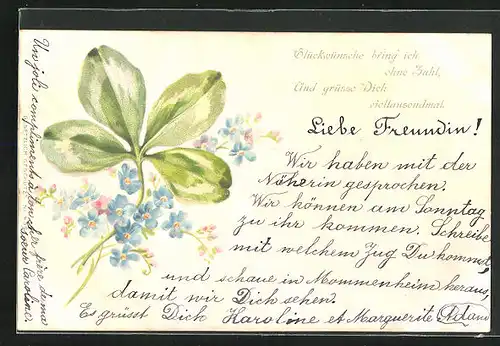 Glückwünsche bring' ich
ohne Zahl,
Und grüsse Dich
vieltausendmal.
Liebe Freundin!
Wir haben mit der
Näherin gesprochen.
Wir können am Sonntag
zu ihr kommen. Schreibe
mit welchem Zug Du kommst,
und schaue in Mommenheim heraus,
damit wir Dich sehen.
Es grüsst Dich Karoline et Marguerite
Un joli compliment à ton cher père de ma
soeur Caroline.